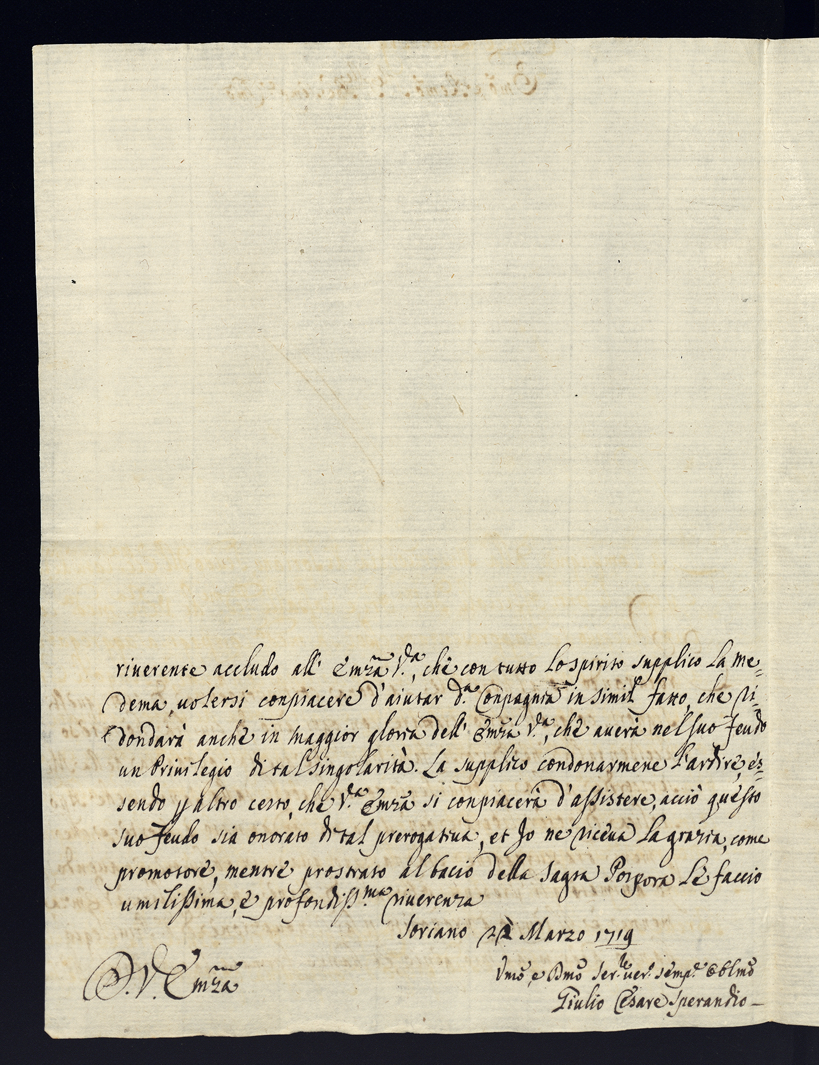 riuerente accludo all' Emza V.ra, che con tutto lo spirito supplico la me=
dema, uolersi conpiacere d'aiutar d.a Conpagnia in simil fatto, che ri=
dondarà anche in maggior gloria dell' Emza V.ra, che auerà nel suo feudo
un Priuilegio di tal singolarità. La supplico condonarmene l'ardire, es=
sendo p altro certo, che V.ra Emza si conpiacerà d'assistere, acciò questo
suo feudo sia onorato di tal prerogatiua, et Jo ne riceua la grazia, come
promotore, mentre prostrato al bacio della Sagra Porpora le faccio
umilissima, e profondiss.ma riuerenza
Soriano Marzo 1719
D. V. Emza
Vmo, e Dmo Ser.re uer. semp.e Oblmo
Giulio Cesare Sperandio